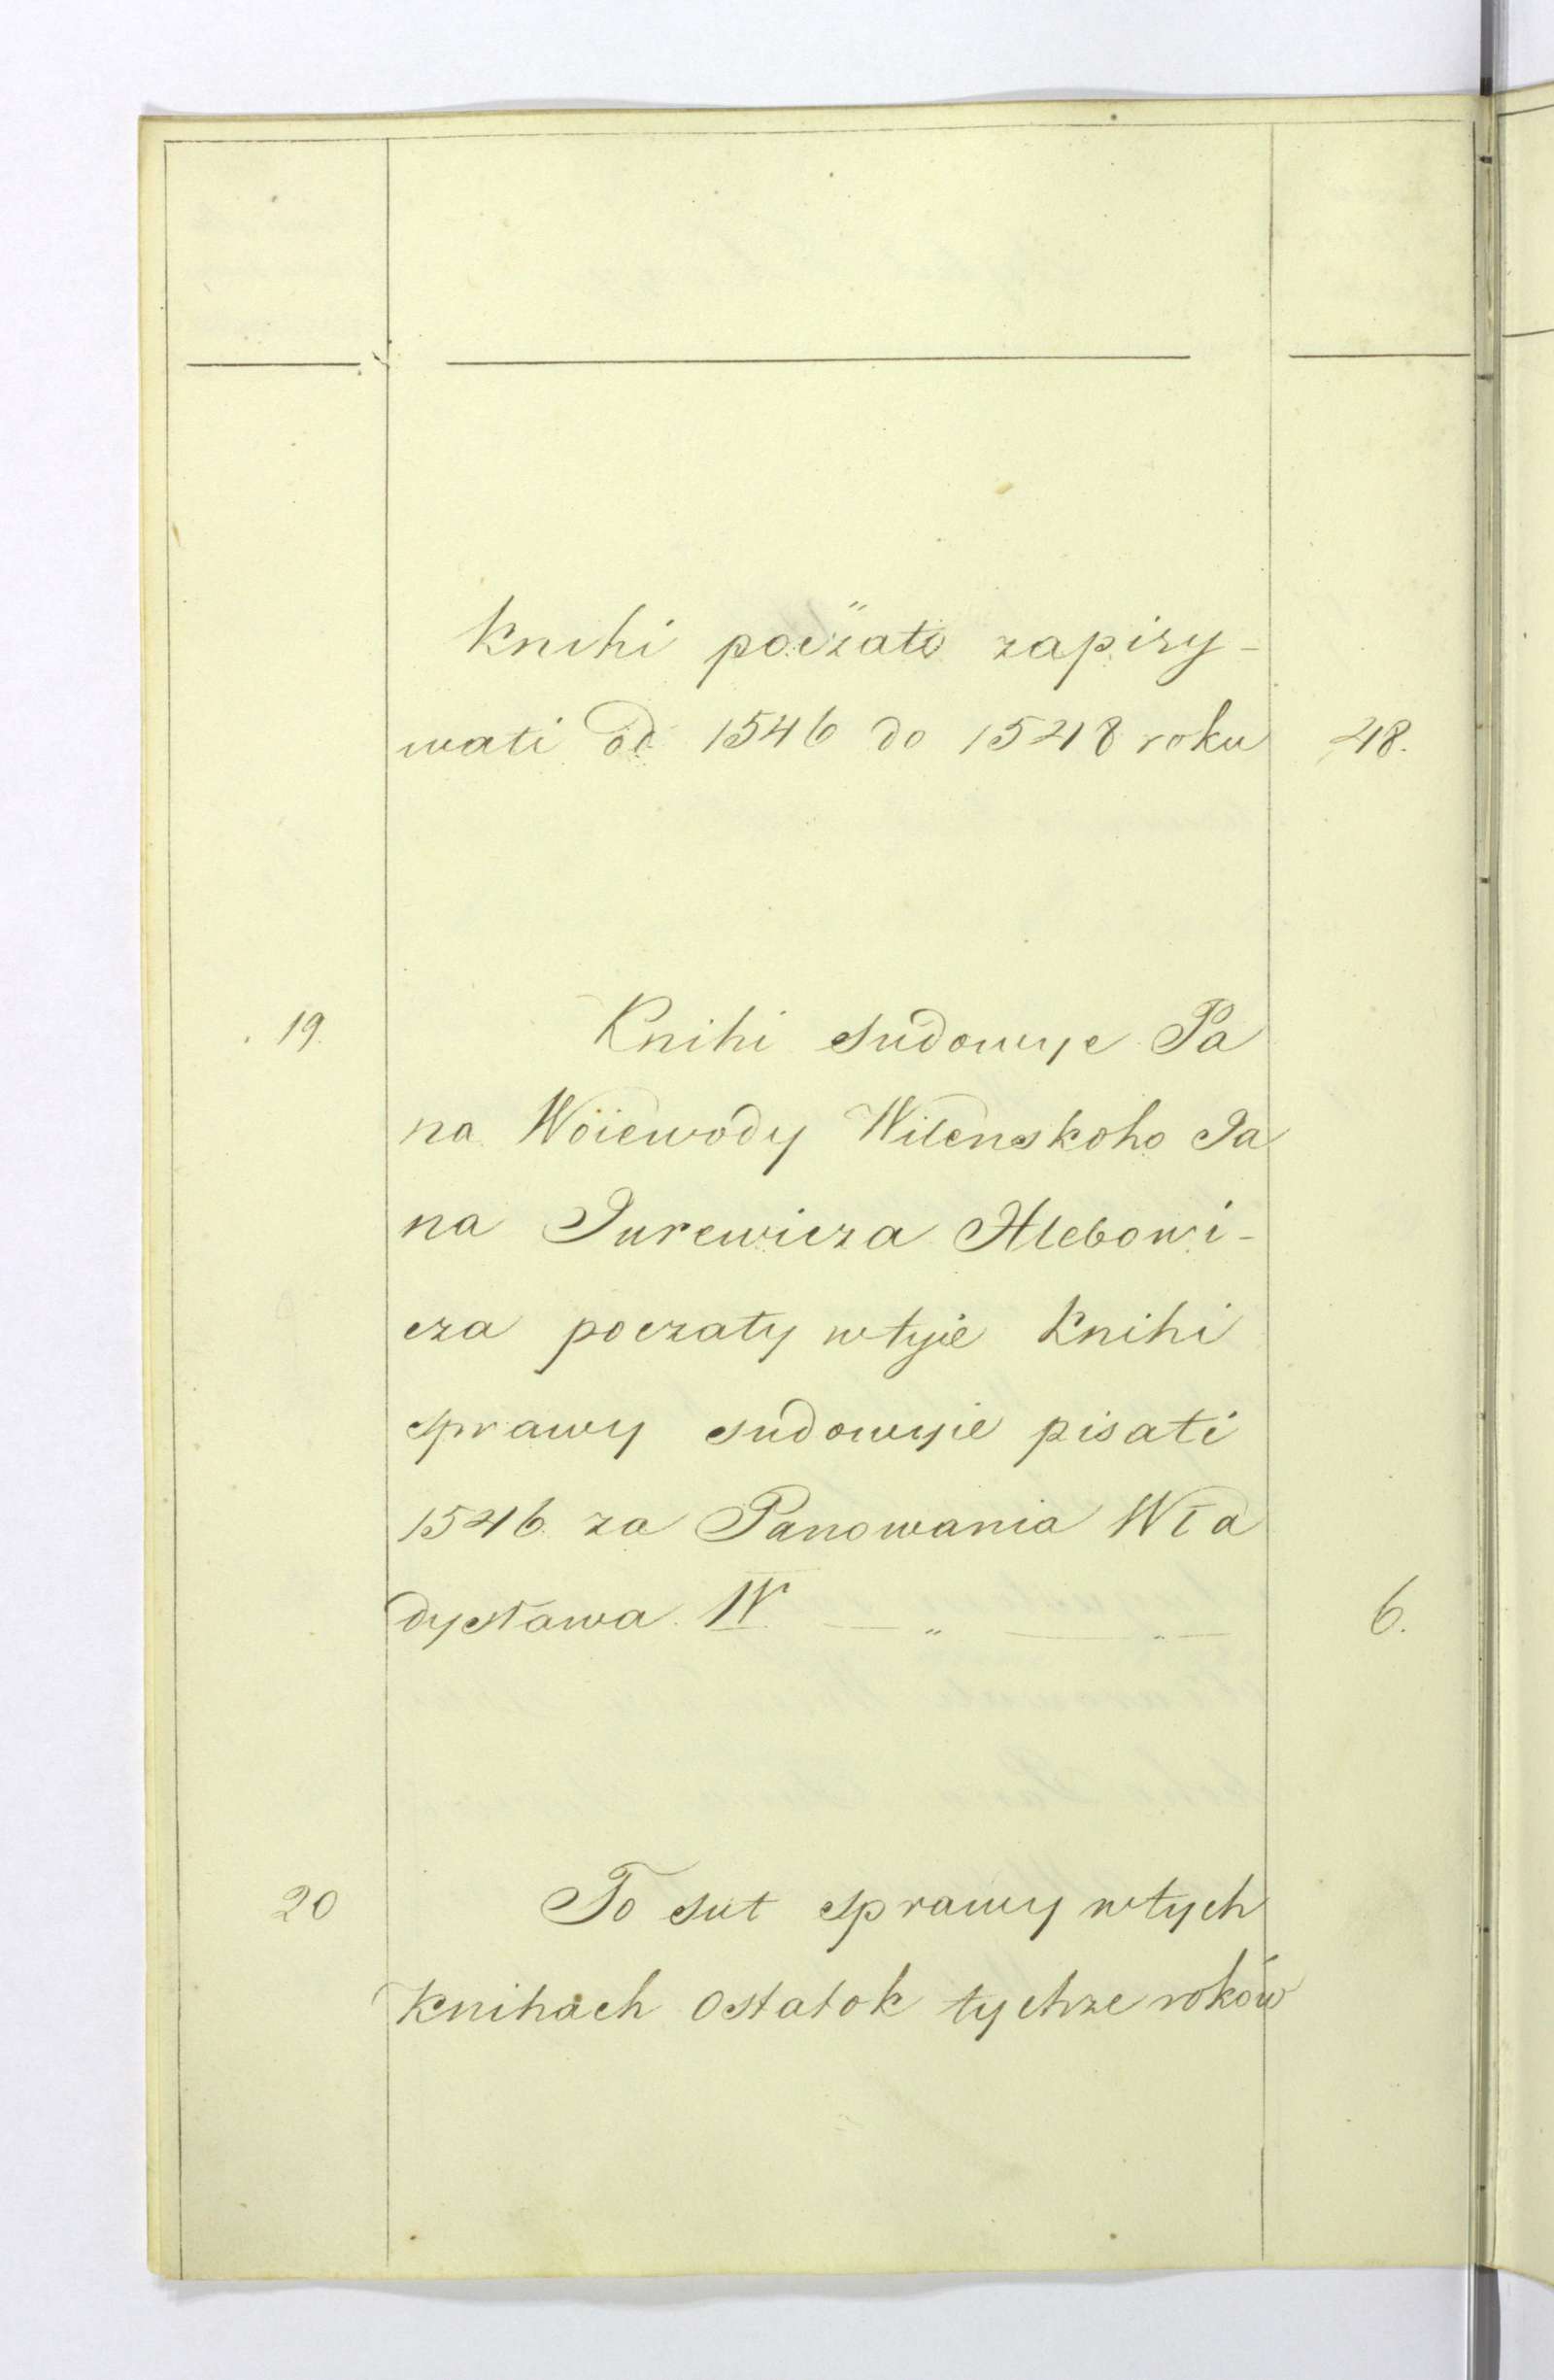 Knihi poczato zapisy-
wati od 1546 do 1548 roku 48.
19. Knihi sudowye Pa
na Woiewody Wilenskoho Ja
na Jurewicza Hlebowi-
cza poczaty wtyie Knihi
sprawy sudowyie pisati
1546 za Panowania Wła
dysława IV — „ — „ — 6.
20 To sut sprawy wtych
Knihach ostatok tychże roków